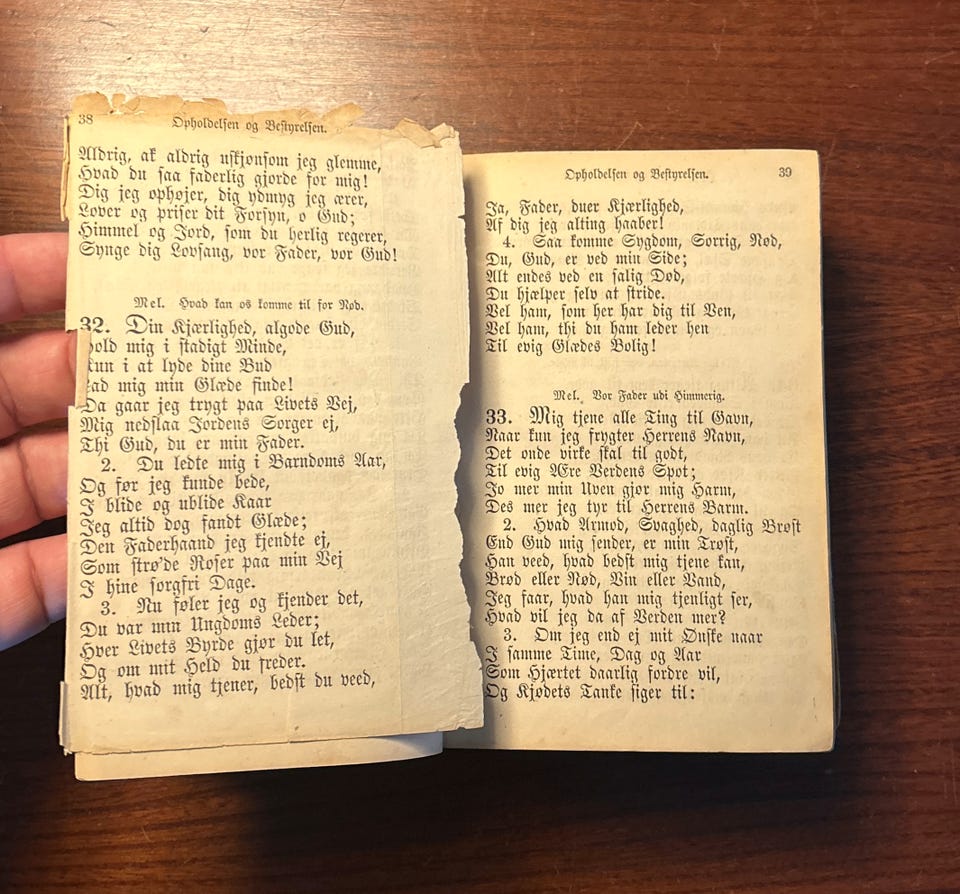 38 Opholdelsen og Bestyrelsen.
Aldrig, ak aldrig uskjønsom jeg glemme,
Hvad du saa faderlig gjorde for mig!
Dig jeg ophøjer, dig ydmyg jeg ærer,
Lover og priser dit Forsyn, o Gud;
Himmel og Jord, som du herlig regerer,
Synge dig Lovsang, vor Fader, vor Gud!
Mel. Hvad kan os komme til for Nød.
32. Din Kjærlighed, algode Gud,
hold mig i stadigt Minde,
kun i at lyde dine Bud
Lad mig min Glæde finde!
Da gaar jeg trygt paa Livets Vej,
Mig nedslaa Jordens Sorger ej,
Thi Gud, du er min Fader.
2. Du ledte mig i Barndoms Aar,
Og før jeg kunde bede,
I blide og ublide Kaar
Jeg altid dog fandt Glæde;
Den Faderhaand jeg kjendte ej,
Som strø'de Roser paa min Vej
I hine sorgfri Dage.
3. Nu føler jeg og kjender det,
Du var min Ungdoms Leder;
Hver Livets Byrde gjør du let,
Og om mit Held du freder.
Alt, hvad mig tjener, bedst du veed,
Opholdelsen og Bestyrelsen. 39
Ja, Fader, duer Kjærlighed,
Af dig jeg alting haaber!
4. Saa komme Sygdom, Sorrig, Nød,
Du, Gud, er ved min Side;
Alt endes ved en salig Død,
Du hjælper selv at stride.
Vel ham, som her har dig til Ven,
Vel ham, thi du ham leder hen
Til evig Glædes Bolig!
Mel. Vor Fader udi Himmerig.
33. Mig tjene alle Ting til Gavn,
Naar kun jeg frygter Herrens Navn,
Det onde virke skal til godt,
Til evig Ære Verdens Spot;
Jo mer min Uven gjør mig Harm,
Des mer jeg tyr til Herrens Barm.
2. Hvad Armod, Svaghed, daglig Brøst
End Gud mig sender, er min Trøst,
Han veed, hvad bedst mig tjene kan,
Brød eller Nød, Vin eller Vand,
Jeg faar, hvad han mig tjenligt ser,
Hvad vil jeg da af Verden mer?
3. Om jeg end ej mit Ønske naar
I samme Time, Dag og Aar
Som Hjærtet daarlig fordre vil,
Og Kjødets Tanke siger til: